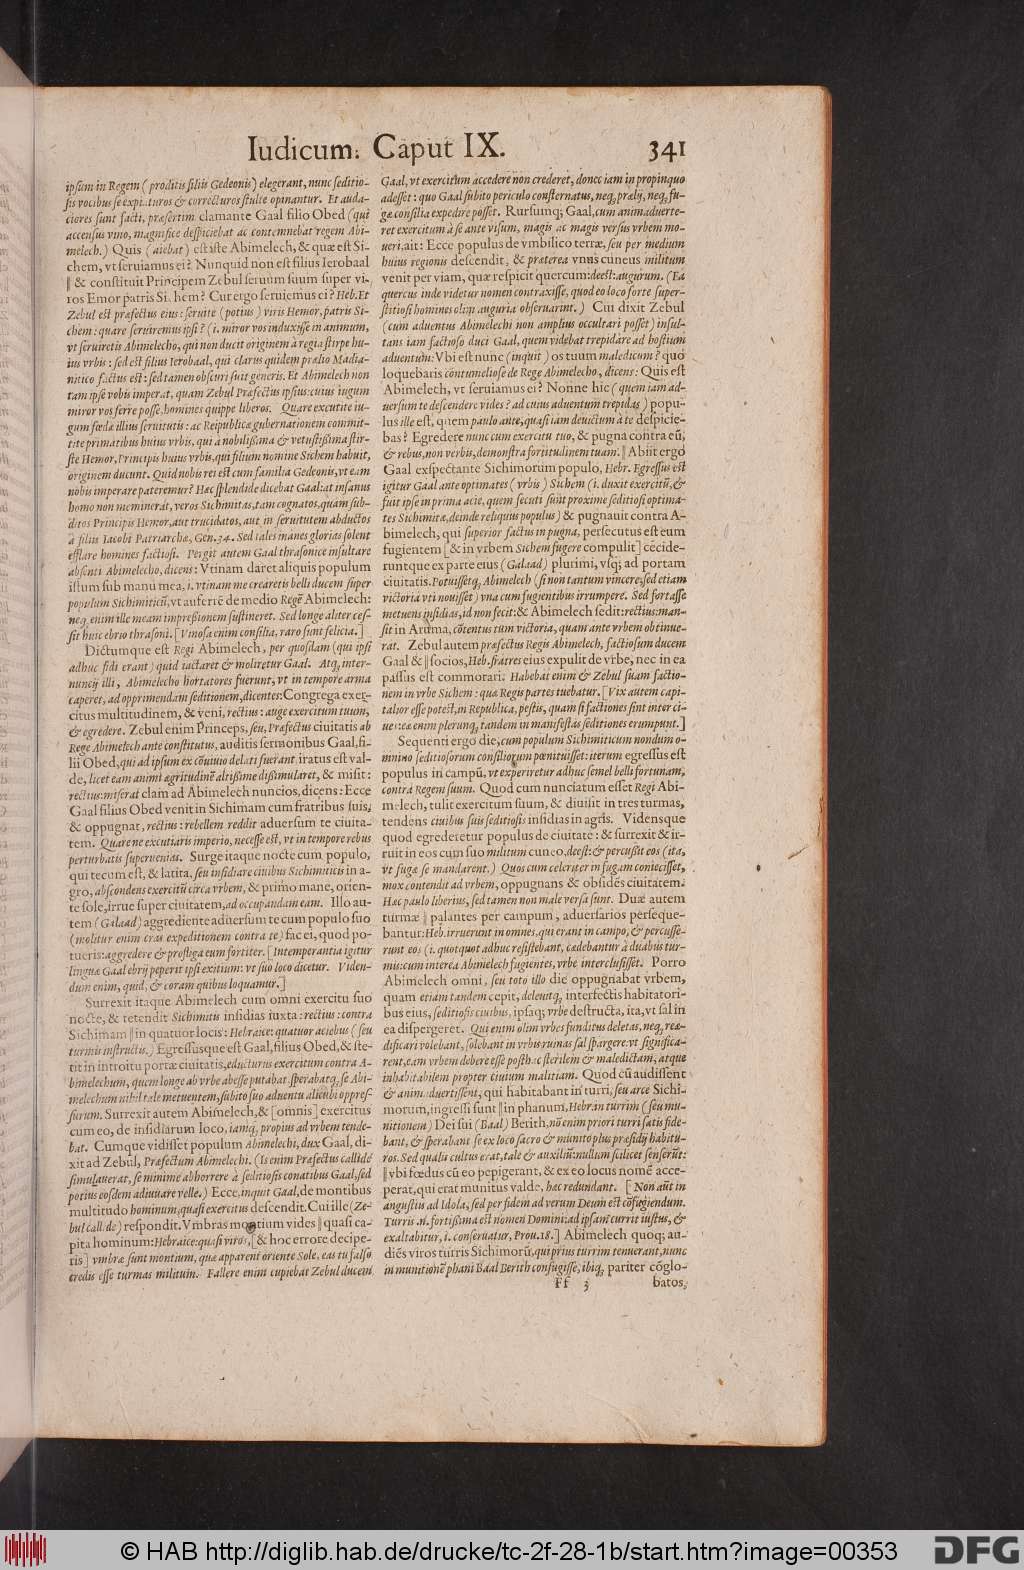 Iudicum: Caput IX. 341
ipsum in Regem (proditis filiis Gedeonis) elegerant, nunc seditio-
sis vocibus se expiaturos & correcturos stultè opinantur. Et auda-
ciores sunt facti, præsertim clamante Gaal filio Obed (qui
accensus vino, magnificè despiciebat ac contemnebat regem Abi-
melech.) Quis (aiebat) est iste Abimelech, & quæ est Si-
chem, vt seruiamus ei? Nunquid non est filius Ierobaal
‖ & constituit Principem Zebul seruum suum super vi-
ros Emor patris Sichem? Cur ergo seruiemus ei? Heb. Et
Zebul est præfectus eius: seruite (potius) viris Hemor, patris Si-
chem: quare seruiremus ipsi? (i. miror vos induxisse in animum,
vt seruiretis Abimelecho, qui non ducit originem à regia stirpe hu-
ius vrbis: sed est filius Ierobaal, qui clarus quidem prælio Madia-
nitico factus est: sed tamen obscuri fuit generis. Et Abimelech non
tam ipse vobis imperat, quam Zebul Præfectus ipsius: cuius iugum
miror vos ferre posse, homines quippe liberos. Quare excutite iu-
gum fœdæ illius seruitutis: ac Reipublicæ gubernationem commit-
tite primatibus huius vrbis, qui à nobilißima & vetustißima stir-
pe Hemor, Principis huius vrbis, qui filium nomine Sichem habuit,
originem ducunt. Quid nobis rei est cum familia Gedeonis, vt eam
nobis imperare pateremur? Hæc splendide dicebat Gaal: at insanus
homo non meminerat, veros Sichimitas, tam cognatos, quam sub-
ditos Principis Hemor, aut trucidatos, aut in seruitutem abductos
à filiis Iacobi Patriarchæ, Gen. 34. Sed tales inanes glorias solent
efflare homines factiosi. Pergit autem Gaal thrasonice insultare
absenti Abimelecho, dicens: Vtinam daret aliquis populum
istum sub manu mea, i. vtinam me crearetis belli ducem super
populum Sichimiticũ, vt auferrẽ de medio Regẽ Abimelech:
neq; enim ille meam impreßionem sustineret. Sed longe aliter ces-
sit huic ebrio thrasoni. [Vinosa enim consilia, raro sunt felicia.]
Dictumque est Regi Abimelech, per quosdam (qui ipsi
adhuc fidi erant) quid iactaret & moliretur Gaal. Atq; inter-
nuncij illi, Abimelecho hortatores fuerunt, vt in tempore arma
caperet, ad opprimendam seditionem, dicentes: Congrega exer-
citus multitudinem, & veni, rectius: auge exercitum tuum,
& egredere. Zebul enim Princeps, seu, Præfectus ciuitatis ab
Rege Abimelech ante constitutus, auditis sermonibus Gaal, fi-
lii Obed, qui ad ipsum ex cõuiuio delati fuerant, iratus est val-
de, licet eam animi ægritudinẽ altißime dißimularet, & misit:
rectius: miserat clam ad Abimelech nuncios, dicens: Ecce
Gaal filius Obed venit in Sichimam cum fratribus suis,
& oppugnat, rectius: rebellem reddit aduersum te ciuita-
tem. Quare ne excutiaris imperio, necesse est, vt in tempore rebus
perturbatis superuenias. Surge itaque nocte cum populo,
qui tecum est, & latita, seu insidiare ciuibus Sichimiticis in a-
gro, abscondens exercitũ circa vrbem, & primo mane, orien-
te sole, irrue super ciuitatem, ad occupandam eam. Illo au-
tem (Galaad) aggrediente aduersum te cum populo suo
(molitur enim cras expeditionem contra te) fac ei, quod po-
tueris: aggredere & profliga eum fortiter. [Intemperantia igitur
linguæ Gaal ebrij peperit ipsi exitium: vt suo loco dicetur. Viden-
dum enim, quid, & coram quibus loquamur.]
Surrexit itaque Abimelech cum omni exercitu suo
nocte, & tetendit Sichimitis insidias iuxta: rectius: contra
Sichimam ‖ in quatuor locis: Hebraice: quatuor aciebus (seu
turmis instructis.) Egressusque est Gaal, filius Obed, & ste-
tit in introitu portæ ciuitatis, educturus exercitum contra A-
bimelechum, quem longe ab vrbe abesse putabat. sperabatq; se Abi-
melechum nihil tale metuentem, subito suo aduentu alicubi oppres-
surum. Surrexit autem Abimelech, & [omnis] exercitus
cum eo, de insidiarum loco, iamq; propius ad vrbem tende-
bat. Cumque vidisset populum Abimelechi, dux Gaal, di-
xit ad Zebul, Præfectum Abimelechi. (Is enim Præfectus callidè
simulauerat, se minime abhorrere à seditiosis conatibus Gaal, sed
potius eosdem adiuuare velle.) Ecce, inquit Gaal, de montibus
multitudo hominum, quasi exercitus descendit. Cui ille (Ze-
bul callide) respondit. Vmbras montium vides ‖ quasi ca-
pita hominum: Hebraice: quasi viros, [& hoc errore decipe-
ris] vmbræ sunt montium, quæ apparent oriente Sole, eas tu falso
credis esse turmas militum. Fallere enim cupiebat Zebul ducem
Gaal, vt exercitum accedere non crederet, donec iam in propinquo
adesset: quo Gaal subito periculo consternatus, neq; prælij, neq; fu-
gæ consilia expedire posset. Rursumq; Gaal, cum animaduerte-
ret exercitum à se ante visum, magis ac magis versus vrbem mo-
ueri, ait: Ecce populus de vmbilico terræ, seu per medium
huius regionis descendit, & præterea vnus cuneus militum
venit per viam, quæ respicit quercum: deest: augurum. (Ea
quercus inde videtur nomen contraxisse, quod eo loco forte super-
stitiosi homines olim auguria obseruarint.) Cui dixit Zebul
(cum aduentus Abimelechi non amplius occultari posset) insul-
tans iam factioso duci Gaal, quem videbat trepidare ad hostium
aduentum: Vbi est nunc (inquit) os tuum maledicum? quo
loquebaris contumeliose de Rege Abimelecho, dicens: Quis est
Abimelech, vt seruiamus ei? Nonne hic (quem iam ad-
uersum te descendere vides? ad cuius aduentum trepidas) popu-
lus ille est, quem paulo ante, quasi iam deuictum à te despicie-
bas? Egredere nunc cum exercitu tuo, & pugna contra eũ,
& rebus, non verbis, demonstra fortitudinem tuam. ‖ Abiit ergo
Gaal exspectante Sichimorum populo, Hebr. Egressus est
igitur Gaal ante optimates (vrbis) Sichem (i. duxit exercitũ, &
fuit ipse in prima acie, quem secuti sunt proxime seditiosi optima-
tes Sichimitæ, deinde reliquus populus) & pugnauit contra A-
bimelech, qui superior factus in pugna, persecutus est eum
fugientem [& in vrbem Sichem fugere compulit] cecide-
runtque ex parte eius (Galaad) plurimi, vsq; ad portam
ciuitatis. Potuissetq; Abimelech (si non tantum vincere, sed etiam
victoria vti nouisset) vna cum fugientibus irrumpere. Sed fortasse
metuens insidias, id non fecit: & Abimelech sedit: rectius: man-
sit in Aruma, cõtentus tum victoria, quam ante vrbem obtinue-
rat. Zebul autem præfectus Regis Abimelech, factiosum ducem
Gaal & ‖ socios, Heb. fratres eius expulit de vrbe, nec in ea
passus est commorari. Habebat enim & Zebul suam factio-
nem in vrbe Sichem: quæ Regis partes tuebatur. [Vix autem capi-
talior esse potest, in Republica, pestis, quam si factiones sint inter ci-
ues: eæ enim plerunq; tandem in manifestas seditiones erumpunt.]
Sequenti ergo die, cum populum Sichimiticum nondum o-
mnino seditiosorum consiliorum pœnituisset: iterum egressus est
populus in campũ, vt experiretur adhuc semel belli fortunam,
contra Regem suum. Quod cum nunciatum esset Regi Abi-
melech, tulit exercitum suum, & diuisit in tres turmas,
tendens ciuibus suis seditiosis insidias in agris. Vidensque
quod egrederetur populus de ciuitate: & surrexit & ir-
ruit in eos cum suo militum cuneo, deest: & percußit eos (ita,
vt fugæ se mandarent.) Quos cum celeriter in fugam coniecisset,
mox contendit ad vrbem, oppugnans & obsidẽs ciuitatem.
Hæc paulo liberius, sed tamen non male versa sunt. Duæ autem
turmæ ‖ palantes per campum, aduersarios perseque-
bantur: Heb. irruerunt in omnes, qui erant in campo, & percusse-
runt eos (i. quotquot adhuc resistebant, cædebantur à duabus tur-
mis: cum interea Abimelech fugientes, vrbe interclusisset. Porro
Abimelech omni, seu toto illo die oppugnabat vrbem,
quam etiam tandem cepit, deleuitq; interfectis habitatori-
bus eius, seditiosis ciuibus, ipsaq; vrbe destructa, ita, vt sal in
ea dispergeret. Qui enim olim vrbes funditus deletas, neq; reæ-
dificari volebant, solebant in vrbis ruinas sal spargere: vt significa-
rent, eam vrbem debere esse posthac sterilem & maledictam, atque
inhabitabilem propter ciuium malitiam. Quod cũ audissent
& animaduertissent, qui habitabant in turri, seu arce Sichi-
morum, ingressi sunt ‖ in phanum, Hebr. in turrim (seu mu-
nitionem) Dei sui (Baal) Berith, nõ enim priori turri satis fide-
bant, & sperabant se ex loco sacro & munito plus præsidij habitu-
ros. Sed qualis cultus erat, tale & auxiliũ: nullum scilicet senserũt:
‖ vbi fœdus cũ eo pepigerant, & ex eo locus nomẽ acce-
perat, qui erat munitus valde, hæc redundant. [Non aũt in
angustiis ad Idola, sed per fidem ad verum Deum est cõfugiendum.
Turris .n. fortißima est nomen Domini: ad ipsam currit iustus, &
exaltabitur, i. conseruatur, Prou. 18.] Abimelech quoq; au-
diẽs viros turris Sichimorũ, qui prius turrim tenuerant, nunc
in munitionẽ phani Baal Berith confugisse, ibiq; pariter cõglo-
Ff 3 batos,
© HAB http://diglib.hab.de/drucke/tc-2f-28-1b/start.htm?image=00353
DFG